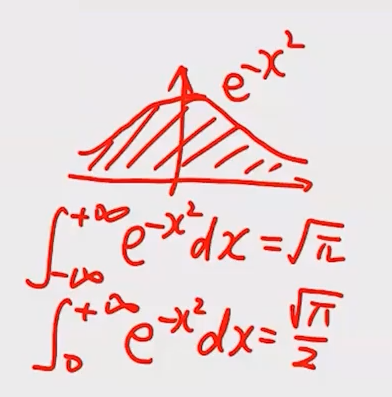 e^{-x^2}
\int_{-\infty}^{+\infty} e^{-x^2} dx = \sqrt{\pi}
\int_{0}^{+\infty} e^{-x^2} dx = \frac{\sqrt{\pi}}{2}